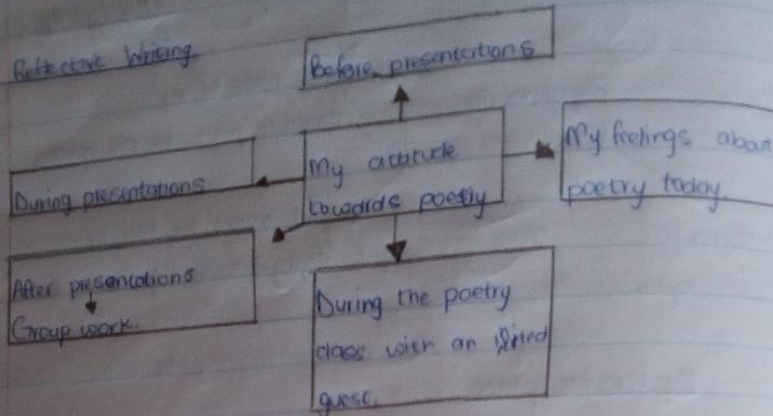 Reflective Writing
Before presentations
My attitude
towards poetry
My feelings about
poetry today
During presentations
After presentations
Group work.
During the poetry
class with an
guest.